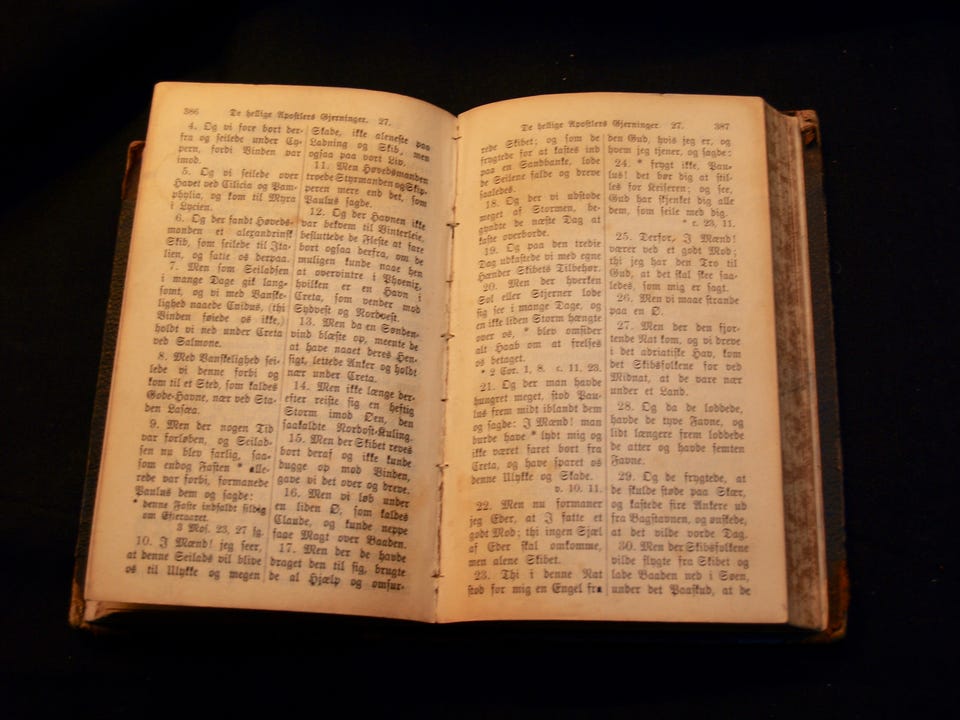 386 De hellige Apostlers Gjerninger. 27.
4. Og vi fore bort der-
fra og seilede under Cy-
pern, fordi Vinden var
imod.
5. Og vi seilede over
Havet ved Cilicia og Pam-
phylia, og kom til Myra
i Lycien.
6. Og der fandt Høveds-
manden et alexandrinsk
Skib, som seilede til Ita-
lien, og satte os derpaa.
7. Men som Seiladsen
i mange Dage gik lang-
somt, og vi med Vanske-
lighed naaede Cnidus, (thi
Vinden føiede os ikke,)
holdt vi ned under Creta
ved Salmone.
8. Med Vanskelighed sei-
lede vi denne forbi og
kom til et Sted, som kaldes
Gode-Havne, nær ved Sta-
den Lasæa.
9. Men der nogen Tid
var forløben, og Seilad-
sen nu blev farlig, saa-
som endog Fasten * alle-
rede var forbi, formanede
Paulus dem og sagde:
* denne Faste indfaldt sildig
om Efteraaret.
3 Mos. 23, 27 fg.
10. I Mænd! jeg seer,
at denne Seilads vil blive
os til Ulykke og megen
Skade, ikke aleneste paa
Ladning og Skib, men
ogsaa paa vort Liv.
11. Men Høvedsmanden
troede Styrmanden og Skip-
peren mere end det, som
Paulus sagde.
12. Og der Havnen ikke
var bekvem til Vinterleie,
besluttede de Fleste at fare
bort ogsaa derfra, om de
muligen kunde naae hen
at overvintre i Phoenix,
hvilken er en Havn i
Creta, som vender mod
Sydvest og Nordvest.
13. Men da en Sønden-
vind blæste op, meente de
at have naaet deres Hen-
sigt, lettede Anker og holdt
nær under Creta.
14. Men ikke længe der-
efter reiste sig en heftig
Storm imod Øen, den
saakaldte Nordost-Kuling.
15. Men der Skibet reves
bort deraf og ikke kunde
bugge op mod Vinden,
gave vi det over og dreve.
16. Men vi løb under
en liden Ø, som kaldes
Claude, og kunde neppe
faae Magt over Baaden.
17. Men der de havde
draget den til sig, brugte
de al Hjælp og omsur-
De hellige Apostlers Gjerninger. 27. 387
rede Skibet; og som de
frygtede for at kastes ind
paa en Sandbanke, lode
de Seilene falde og dreve
saaledes.
18. Og der vi udstode
meget af Stormen, be-
gyndte de næste Dag at
kaste overborde.
19. Og paa den tredie
Dag udkastede vi med egne
Hænder Skibets Tilbehør.
20. Men der hverken
Sol eller Stjerner lode
sig see i mange Dage, og
en ikke liden Storm hængte
over os, * blev omsider
alt Haab om at frelses
os betaget.
* 2 Cor. 1, 8. c. 11, 23.
21. Og der man havde
hungret meget, stod Pau-
lus frem midt iblandt dem
og sagde: I Mænd! man
burde have * lydt mig og
ikke været faret bort fra
Creta, og have sparet os
denne Ulykke og Skade.
v. 10. 11.
22. Men nu formaner
jeg Eder, at I fatte et
godt Mod; thi ingen Sjæl
af Eder skal omkomme,
men alene Skibet.
23. Thi i denne Nat
stod for mig en Engel fra
den Gud, hvis jeg er, og
hvem jeg tjener, og sagde:
24. * frygt ikke, Pau-
lus! det bør dig at stil-
les for Keiseren; og see,
Gud har skjenket dig alle
dem, som seile med dig.
* c. 23, 11.
25. Derfor, I Mænd!
værer ved et godt Mod;
thi jeg har den Tro til
Gud, at det skal skee saa-
ledes, som mig er sagt.
26. Men vi maae strande
paa en Ø.
27. Men der den fjor-
tende Nat kom, og vi dreve
i det adriatiske Hav, kom
det Skibsfolkene for ved
Midnat, at de vare nær
under et Land.
28. Og da de loddede,
havde de tyve Favne, og
lidt længere frem loddede
de atter og havde femten
Favne.
29. Og de frygtede, at
de skulde støde paa Skær,
og kastede fire Ankere ud
fra Bagstavnen, og ønskede,
at det vilde vorde Dag.
30. Men der Skibsfolkene
vilde flygte fra Skibet og
lade Baaden ned i Søen,
under det Paaskud, at de